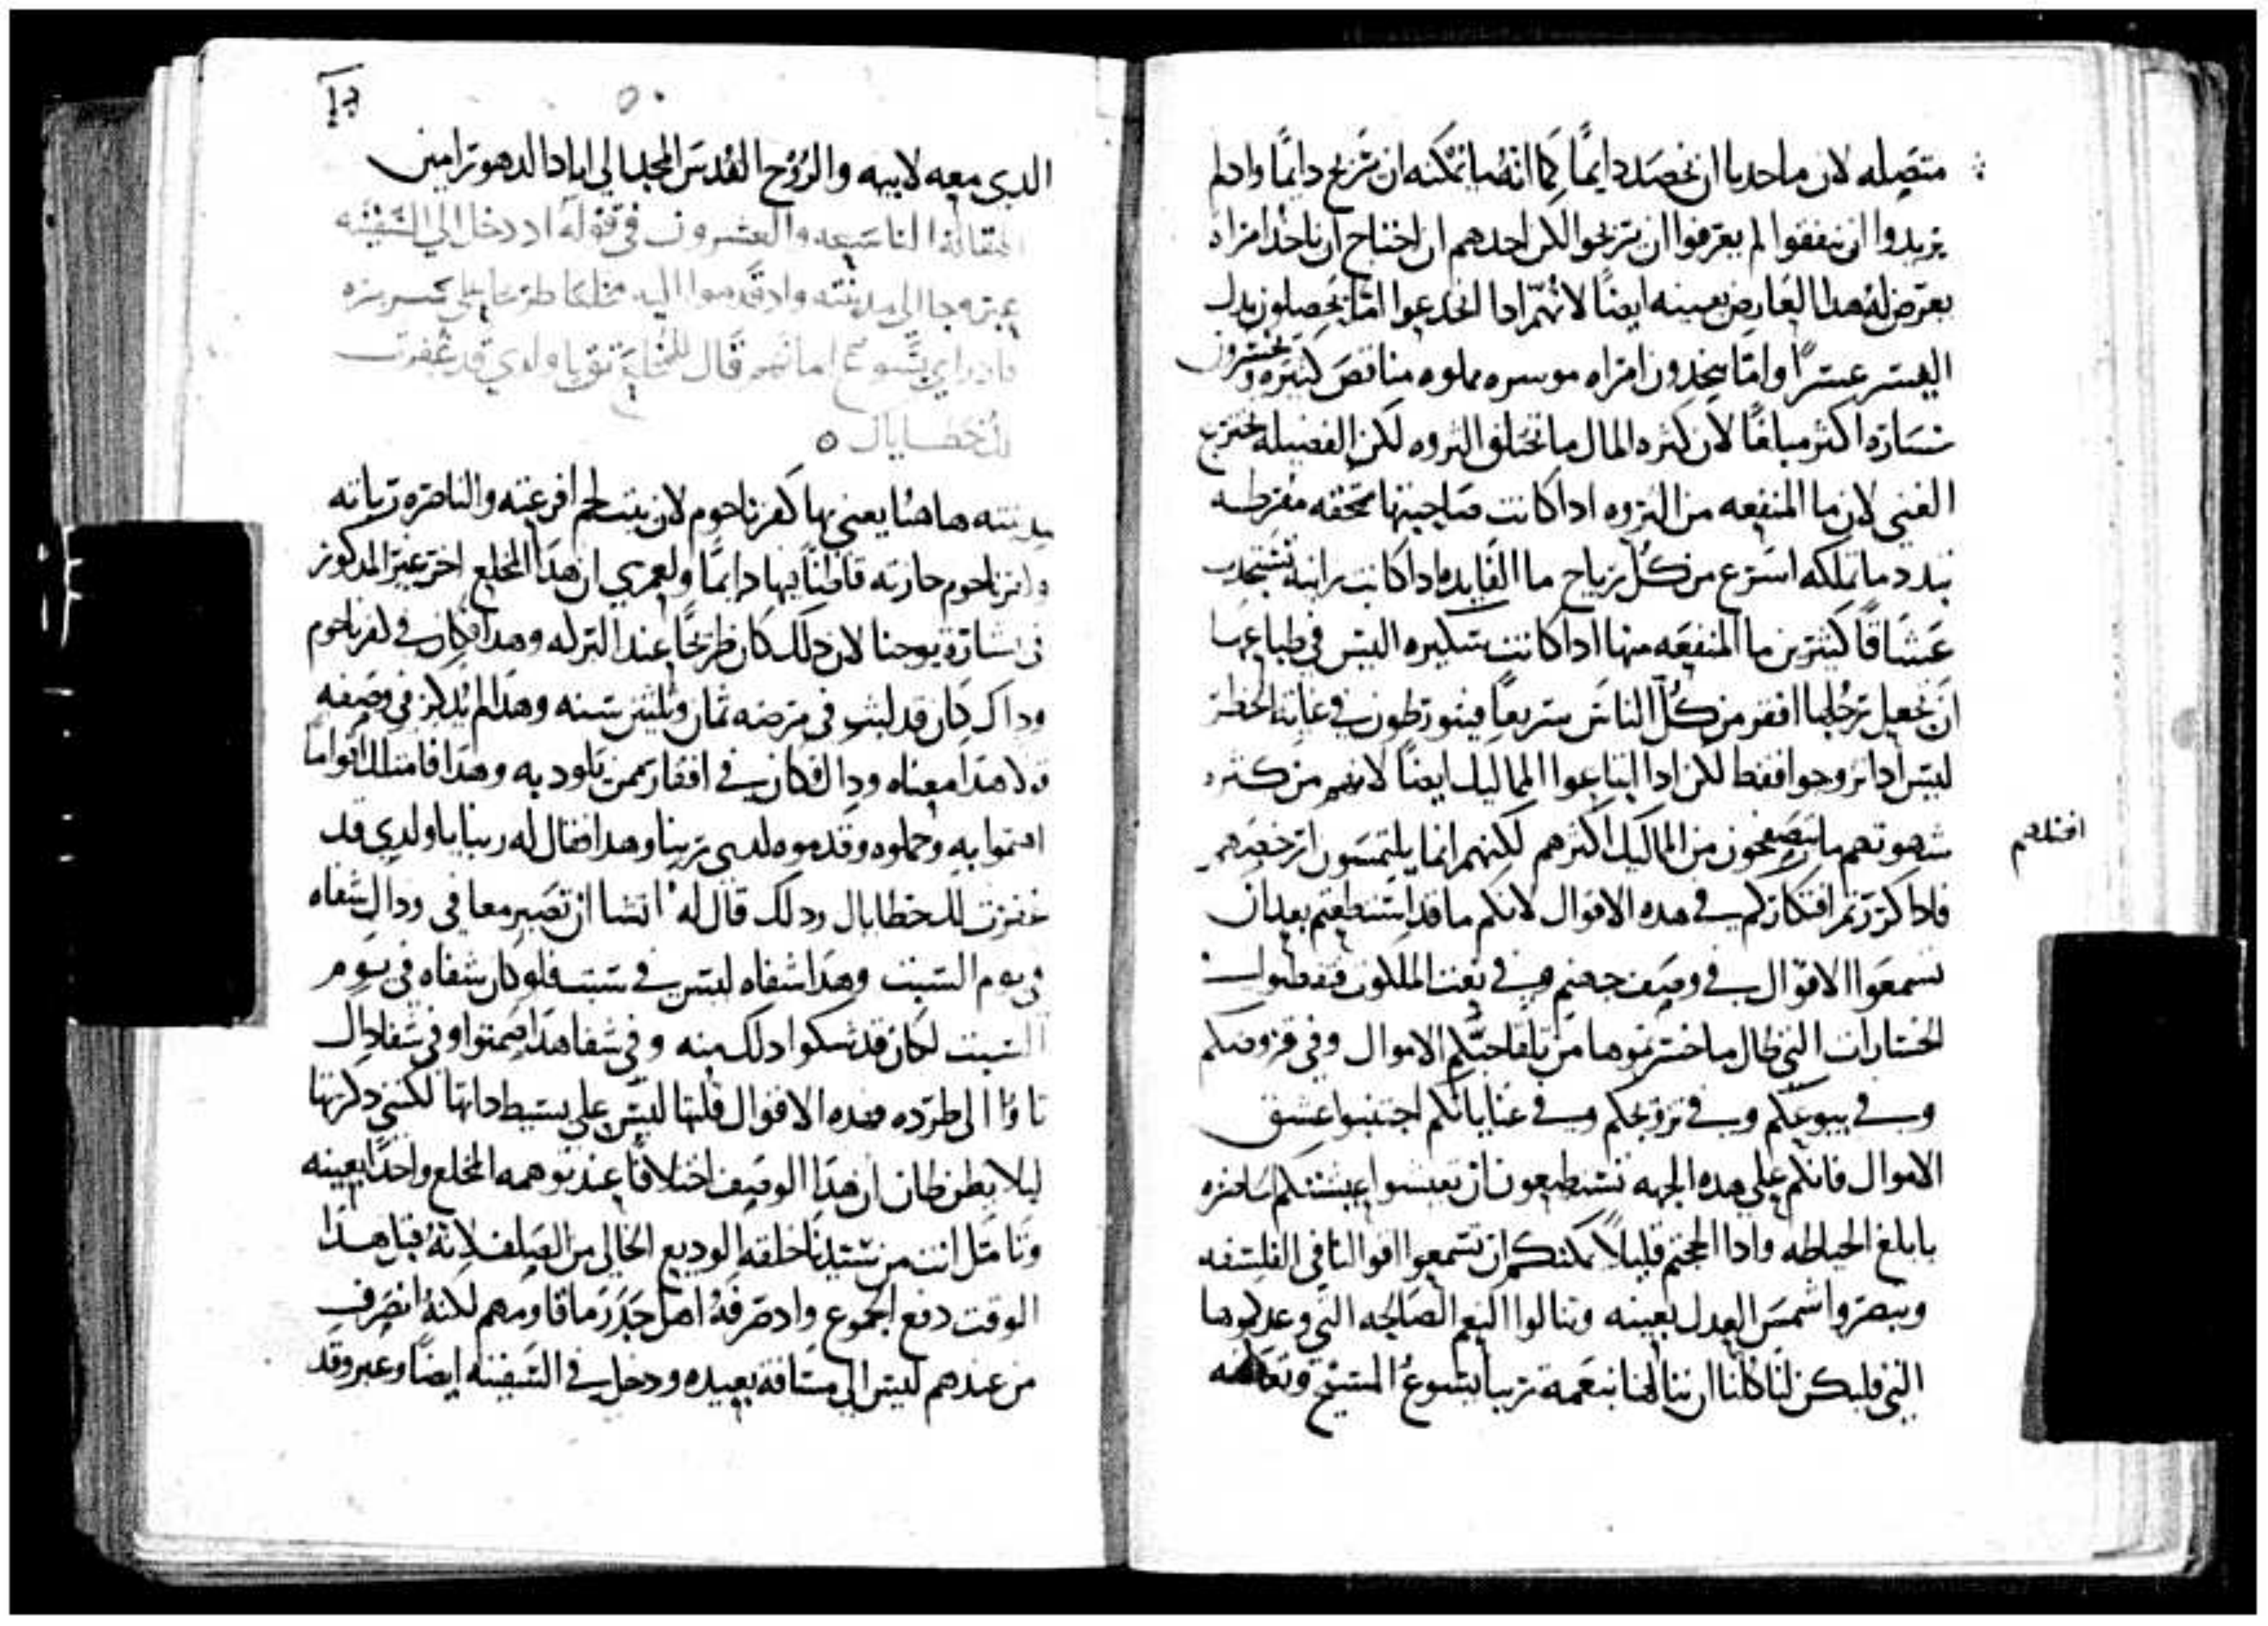 متصله لان ما احدنا ان نحصد دايمًا كما انه ما نمكنه ان نربح دايمًا وادا لم
يريدوا ان ينفقوا لم يعرفوا ان يربحوا لكن احدهم ان احتاج ان ياخد امراه
يعرض له هدا العارض بعينه ايضًا لانهم ادا انخدعوا اما يحصلون بدل
اليسر عسرًا واما يجدون امراه موسره مملوه مناقص كثيره ويخسرون
خسارة اكثر مبلغًا لان كثرة المال ما تخلق الثروه لكن الفضيله تخترع
الغنى لان ما المنفعه من الثروه ادا كانت صاحبتها مفرطه
تبدد ما تملكه اسرع من كل رياح ما الفايده ادا كانت زانية تستجدب
عشاقًا كثيرين ما المنفعه منها ادا كانت سكيره اليس في طباعها
ان تجعل رجلها افقر من كل الناس سريعًا فيتورطون في غاية الخطر
ليس ادا تزوجوا فقط لكن ادا ابتاعوا المماليك ايضًا لانهم من كثره
شهوتهم ما يتصفحون من المماليك اكثرهم لكنهم انما يلتمسون ارخصهم
فادا كررتم افتكاركم في هده الاقوال لانكم ما قد استطعتم بعد ان
تسمعوا الاقوال في وصف جهنم وفي نعت الملكوت
الخسارات التي طال ما خسرتموها من تلقا حبكم الاموال وفي قروضكم
وفي بيوعكم وفي تزوجكم وفي عناياتكم اجتنبوا عشق
الاموال فانكم على هده الجهه تستطيعون ان تعيشوا عيشتكم
بابلغ الحياطه وادا نجحتم قليلاً يمكنكم ان تسمعوا اقوالنا في الفلسفه
وتبصروا شمس العدل بعينه وتنالوا النعم الصالحه التي وعد بها
التي فليكن لنا كلنا ان ننالها بنعمة ربنا يسوع المسيح وتعطفه
الدي معه لابيه والروح القدس المجد الى اباد الدهور امين
المقاله التاسعه والعشرون في قوله اد دخل الي السفينه
عبر وجا الى مدينته واد قدموا اليه مخلعًا طريحًا على سريره
فاد راى يسوع امانتهم قال للمخلع تق يا ولدي قد غفرت
لك خطاياك
مدينته هاهنا يعني بها كفرناحوم لان بيت لحم افرعته والناصره ربته
وكفرناحوم حازته قاطنًا بها دايمًا ولعمري ان هدا المخلع اخر غير المدكور
في بشارة يوحنا لان دلك كان طريحًا عند البركه وهدا فكان في كفرناحوم
وداك كان قد لبث في مرضه ثمان وثلثين سنه وهدا لم يدكر في وصفه
ولا هدا معناه وداك فكان في افتقار ممن يلود به وهدا فامتلك اقوامًا
اهتموا به وحملوه وقدموه لدى ربنا وهدا فقال له ربنا يا ولدي قد
غفرت لك خطاياك ودلك قال له اتشا ان تصير معافى وداك شفاه
في يوم السبت وهدا شفاه ليس في سبت فلو كان شفاه في يوم
السبت لكان قد شكوا دلك منه وفي شفا هدا صمتوا وفي شفا داك
ثاروا الى طرده فهده الاقوال قلتها ليس على بسيط داتها لكنني دكرتها
ليلا يظن ظان ان هدا الوصف اختلافًا عند توهمه المخلع واحدًا بعينه
وتامل انت من سيدنا خلقه الوديع الخالي من الصلف لانه قبل هدا
الوقت دفع الجموع واد صرفه اهل جدر ما قاومهم لكنه انصرف
من عندهم ليس الي مسافة بعيده ودخل في السفينه ايضًا وعبر وقد